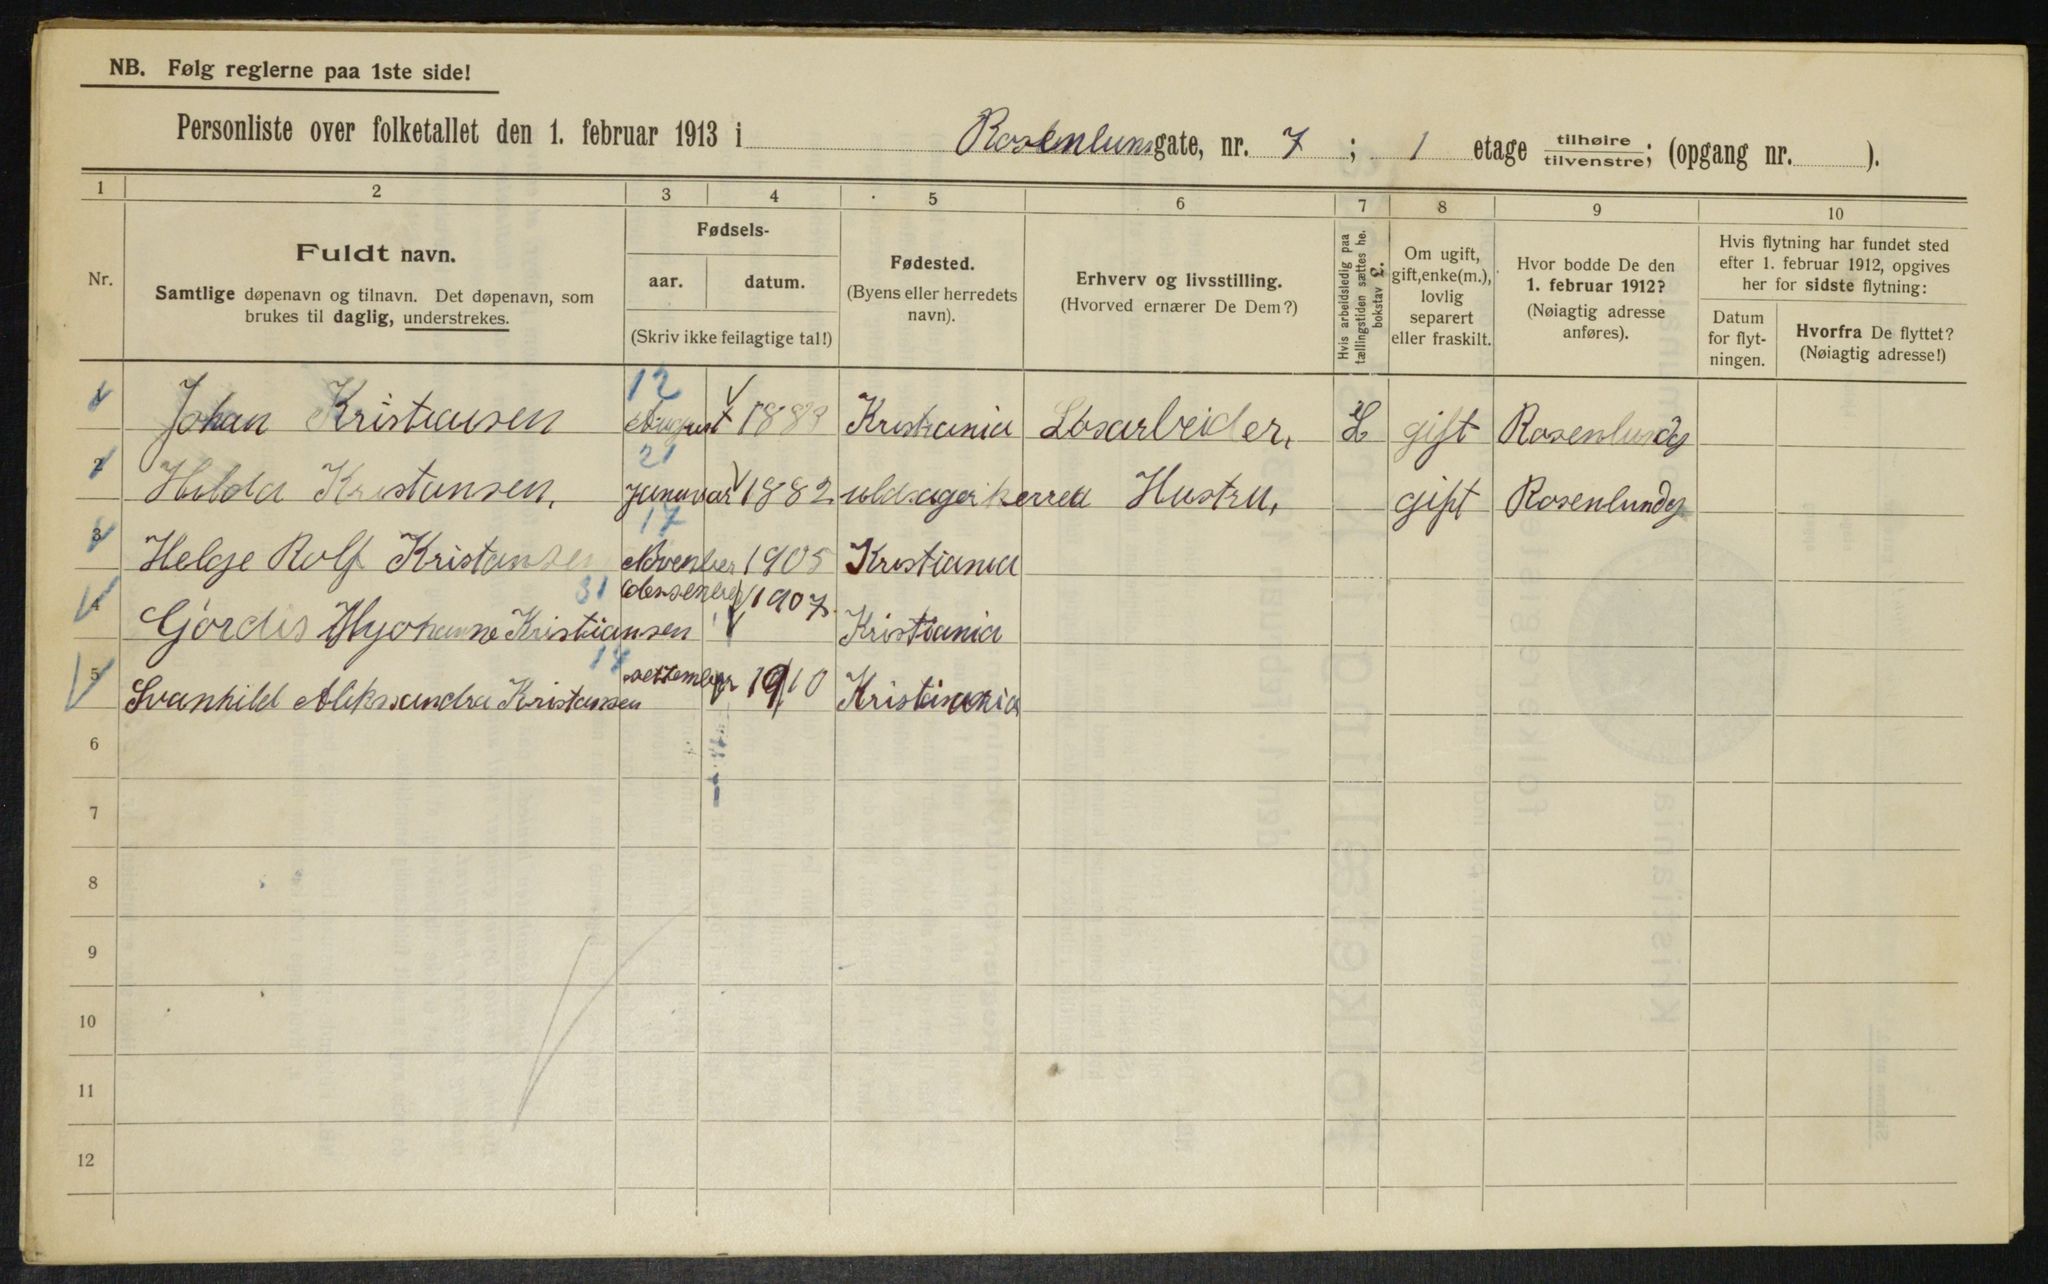 NB. Følg reglerne paa 1ste side!
Personliste over folketallet den 1. februar 1913 i Rosenlunsgate, nr. 7 ; 1 etage tilhøire tilvenstre; (opgang nr. ).
1 2 3 4 5 6 7 8 9 10
Nr.
Fuldt navn.
Samtlige døpenavn og tilnavn. Det døpenavn, som
brukes til daglig, understrekes.
Fødsels-
aar. datum.
(Skriv ikke feilagtige tal!)
Fødested.
(Byens eller herredets
navn).
Erhverv og livsstilling.
(Hvorved ernærer De Dem?)
Hvis arbeidsledig paa
tællingstiden sættes he.
bokstav L.
Om ugift,
gift, enke(m.),
lovlig
separert
eller fraskilt.
Hvor bodde De den
1. februar 1912?
(Nøiagtig adresse
anføres).
Hvis flytning har fundet sted
efter 1. februar 1912, opgives
her for sidste flytning:
Datum
for flyt-
ningen.
Hvorfra De flyttet?
(Nøiagtig adresse!)
12
1 Johan Kristiansen August Kristiania Løsarbeider, L gift Rosenlundg
21
2 Hilda Kristansen, Januvar 1882 Hustru, gift Rosenlundg
17
3 Helge Rolf Kristansen November 1905 Kristiania
31 1907
4 Gordis Kristiansen Kristiania
5 Svanhild Aleksandra Kristansen 1910 Kristiania
6
7
8
9
10
11
12